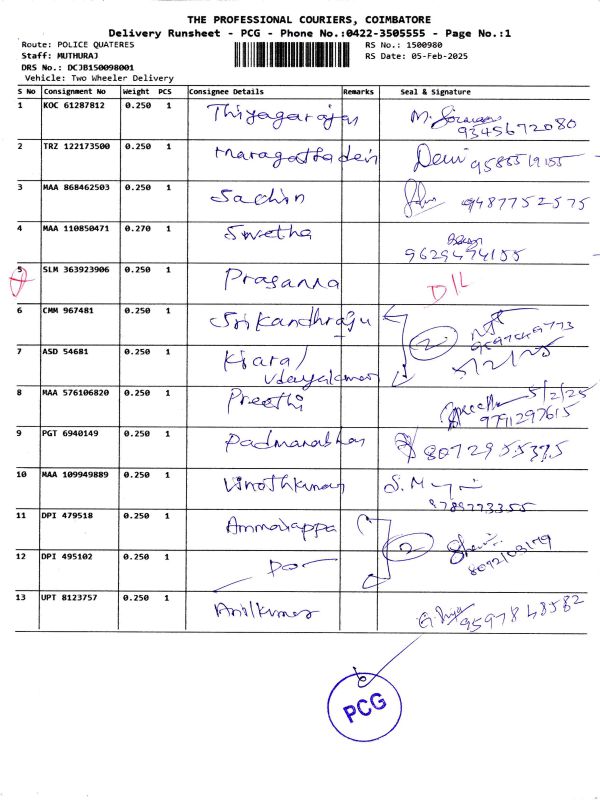 THE PROFESSIONAL COURIERS, COIMBATORE
Delivery Runsheet - PCG - Phone No.:0422-3505555 - Page No.:1
Route: POLICE QUATERES
RS No.: 1500980
Staff: MUTHURAJ
RS Date: 05-Feb-2025
DRS No.: DCJB150098001
Vehicle: Two Wheeler Delivery
S No Consignment No Weight PCS Consignee Details Remarks Seal & Signature
1 KOC 61287812 0.250 1 Thiyagarajan M.
9345672080
2 TRZ 122173500 0.250 1 Maragathadevi Devi
3 MAA 868462503 0.250 1 Sachin 9487752575
4 MAA 110850471 0.270 1 Swetha
9629474155
5 SLM 363923906 0.250 1 Prasanna D/L
6 CMM 967481 0.250 1 Srikandhraju 2
7 ASD 54681 0.250 1 Kiara/
Udayakumar 5/2/25
8 MAA 576106820 0.250 1 Preethi 5/2/25
9791297615
9 PGT 6940149 0.250 1 Padmanabhan 8072955375
10 MAA 109949889 0.250 1 Vinothkumar S. M
9789773355
11 DPI 479518 0.250 1 Ammaiappa 2
12 DPI 495102 0.250 1 Do
13 UPT 8123757 0.250 1 Anilkumar 9597848582
PCG